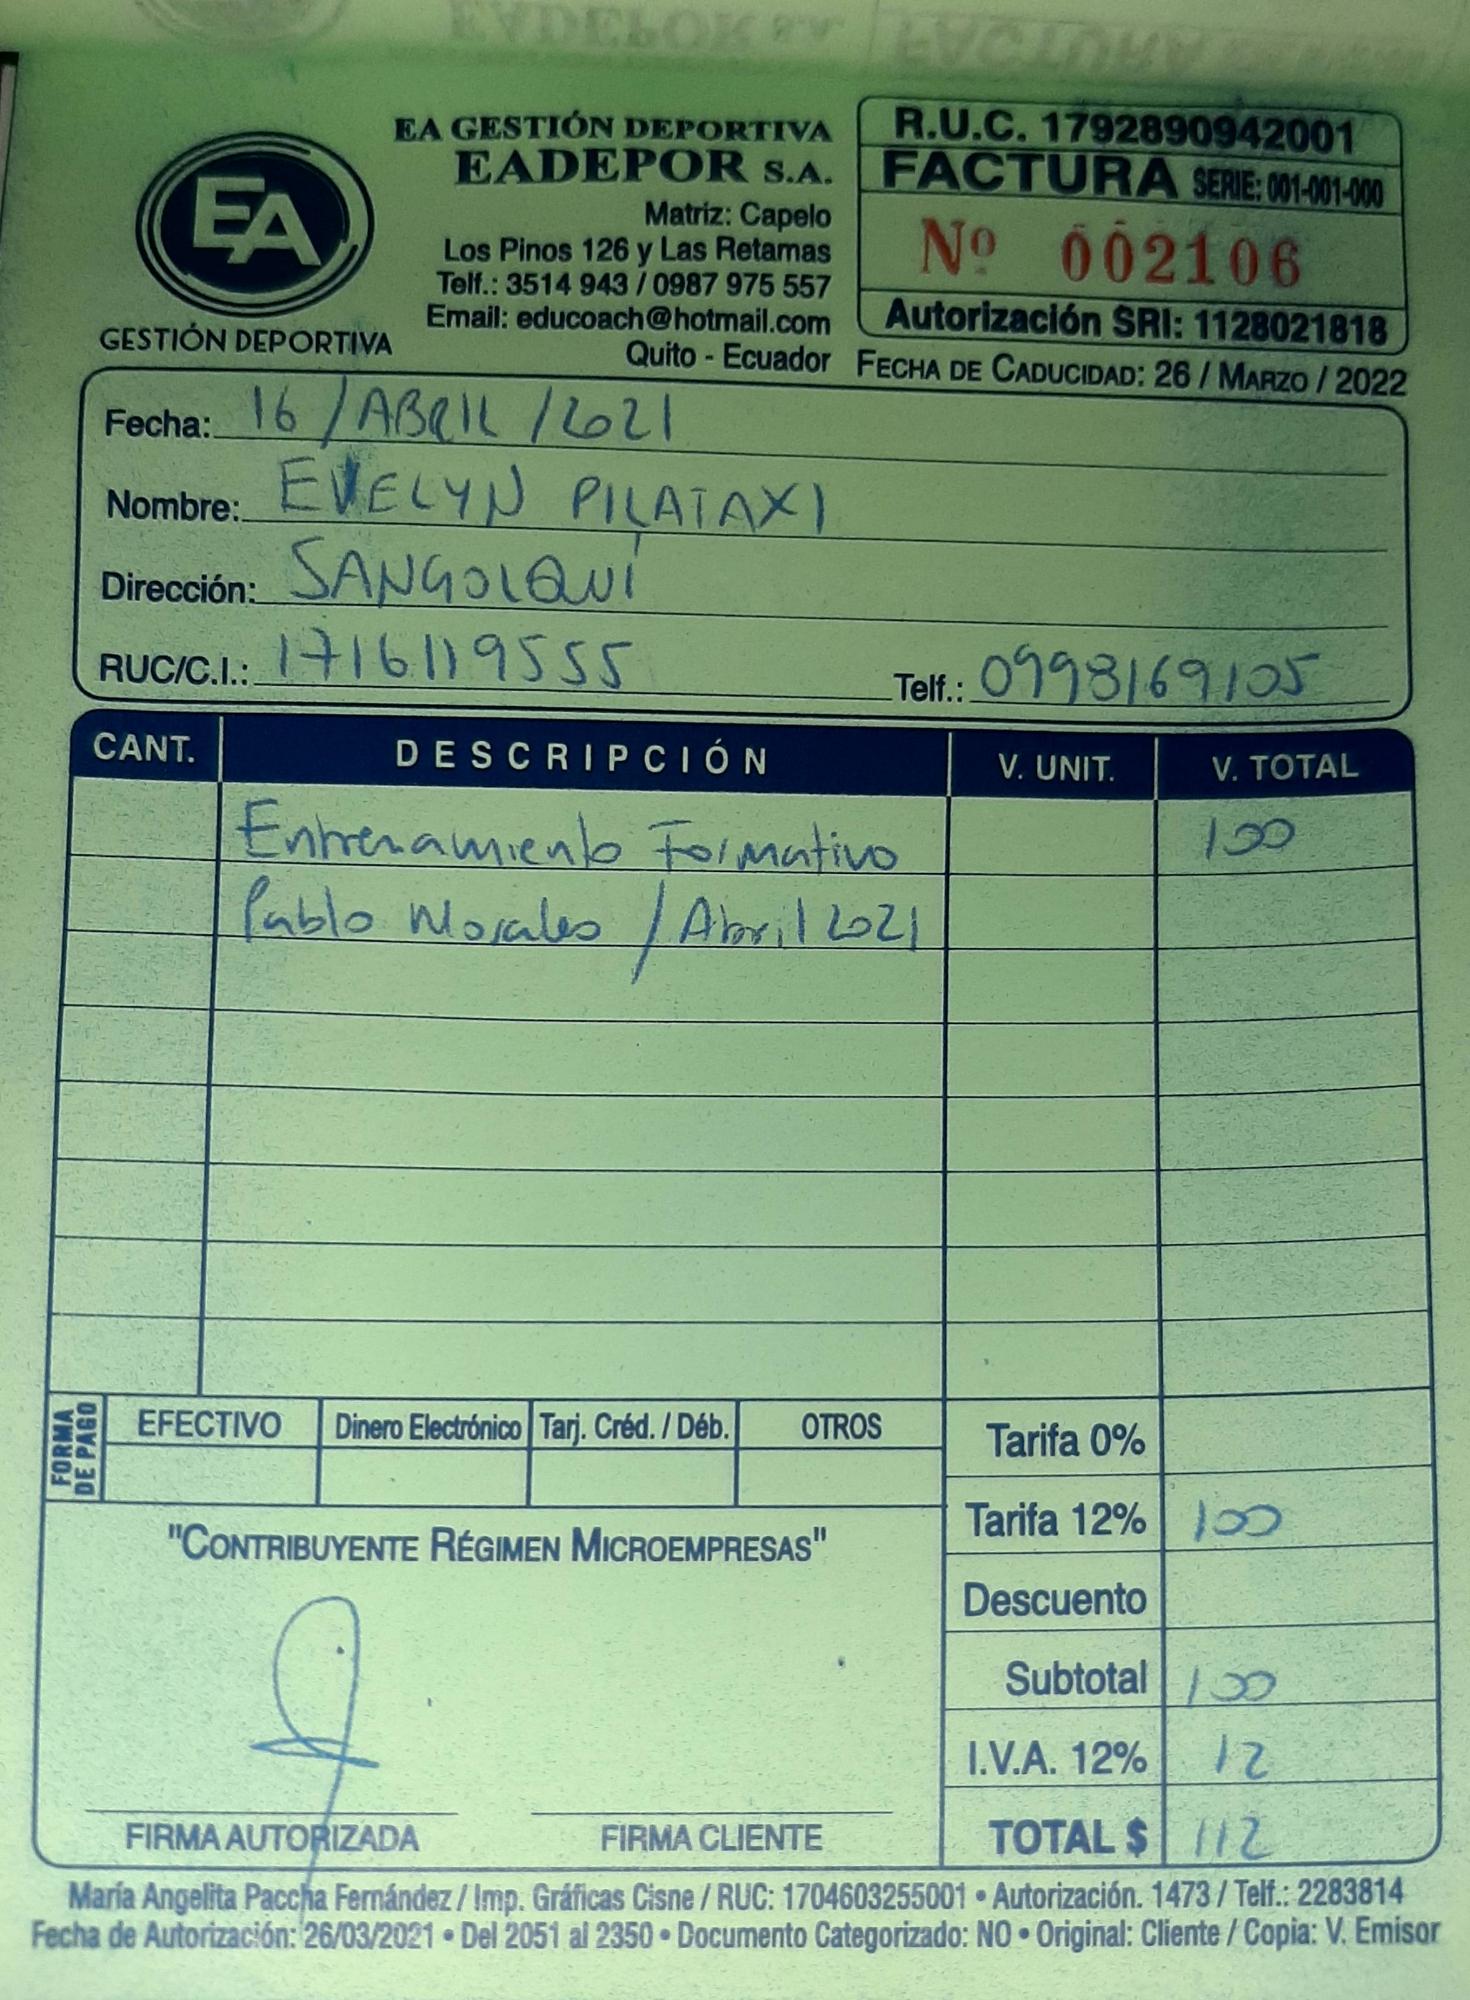 EA
GESTIÓN DEPORTIVA
EA GESTIÓN DEPORTIVA
EADEPOR S.A.
Matriz: Capelo
Los Pinos 126 y Las Retamas
Telf.: 3514 943 / 0987 975 557
Email: educoach@hotmail.com
Quito - Ecuador
R.U.C. 1792890942001
FACTURA SERIE: 001-001-000
Nº 002106
Autorización SRI: 1128021818
FECHA DE CADUCIDAD: 26 / MARZO / 2022
Fecha: 16 / ABRIL / 2021
Nombre: EVELYN PILATAXI
Dirección: SANGOLQUÍ
RUC/C.I.: 1716119555 Telf.: 0998169105
CANT. DESCRIPCIÓN V. UNIT. V. TOTAL
Entrenamiento Formativo 100
Pablo Morales / Abril 2021
FORMA DE PAGO
EFECTIVO Dinero Electrónico Tarj. Créd. / Déb. OTROS
Tarifa 0%
Tarifa 12% 100
Descuento
Subtotal 100
I.V.A. 12% 12
TOTAL $ 112
"CONTRIBUYENTE RÉGIMEN MICROEMPRESAS"
FIRMA AUTORIZADA FIRMA CLIENTE
María Angelita Paccha Fernández / Imp. Gráficas Cisne / RUC: 1704603255001 • Autorización. 1473 / Telf.: 2283814
Fecha de Autorización: 26/03/2021 • Del 2051 al 2350 • Documento Categorizado: NO • Original: Cliente / Copia: V. Emisor